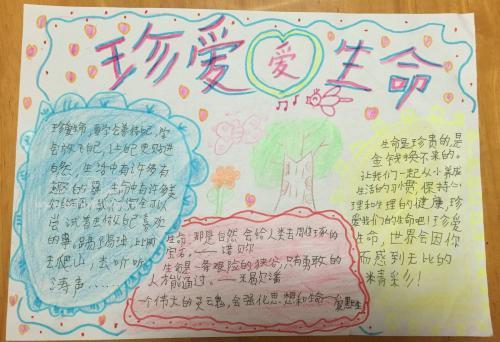 珍爱 爱 生命
珍爱生命,要学会善待自己,学
会放飞自己,让自己更贴近
自然,生活中有许多有
趣的事,生命中有许多美
好的东西,我们完全可以
尝试着去做自己喜欢
的事,踢踢球,上网
去爬山,去听听
涛声……
生命,那是自然会给人类去雕琢的
宝石。——诺贝尔
生命是一条艰险的狭谷,只有勇敢的
人方能通过。——米歇尔潘
一个伟大的灵魂,会强化思想和生命——爱默生
生命是珍贵的,是
金钱换不来的。
让我们一起从小养成
生活的好习惯,保持心
理和生理的健康,珍
爱我们的生命吧!珍爱
生命,世界会因你
而感到无比的
精彩!